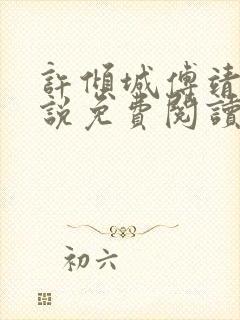 許傾城傅靖
說免費閱讀
初六